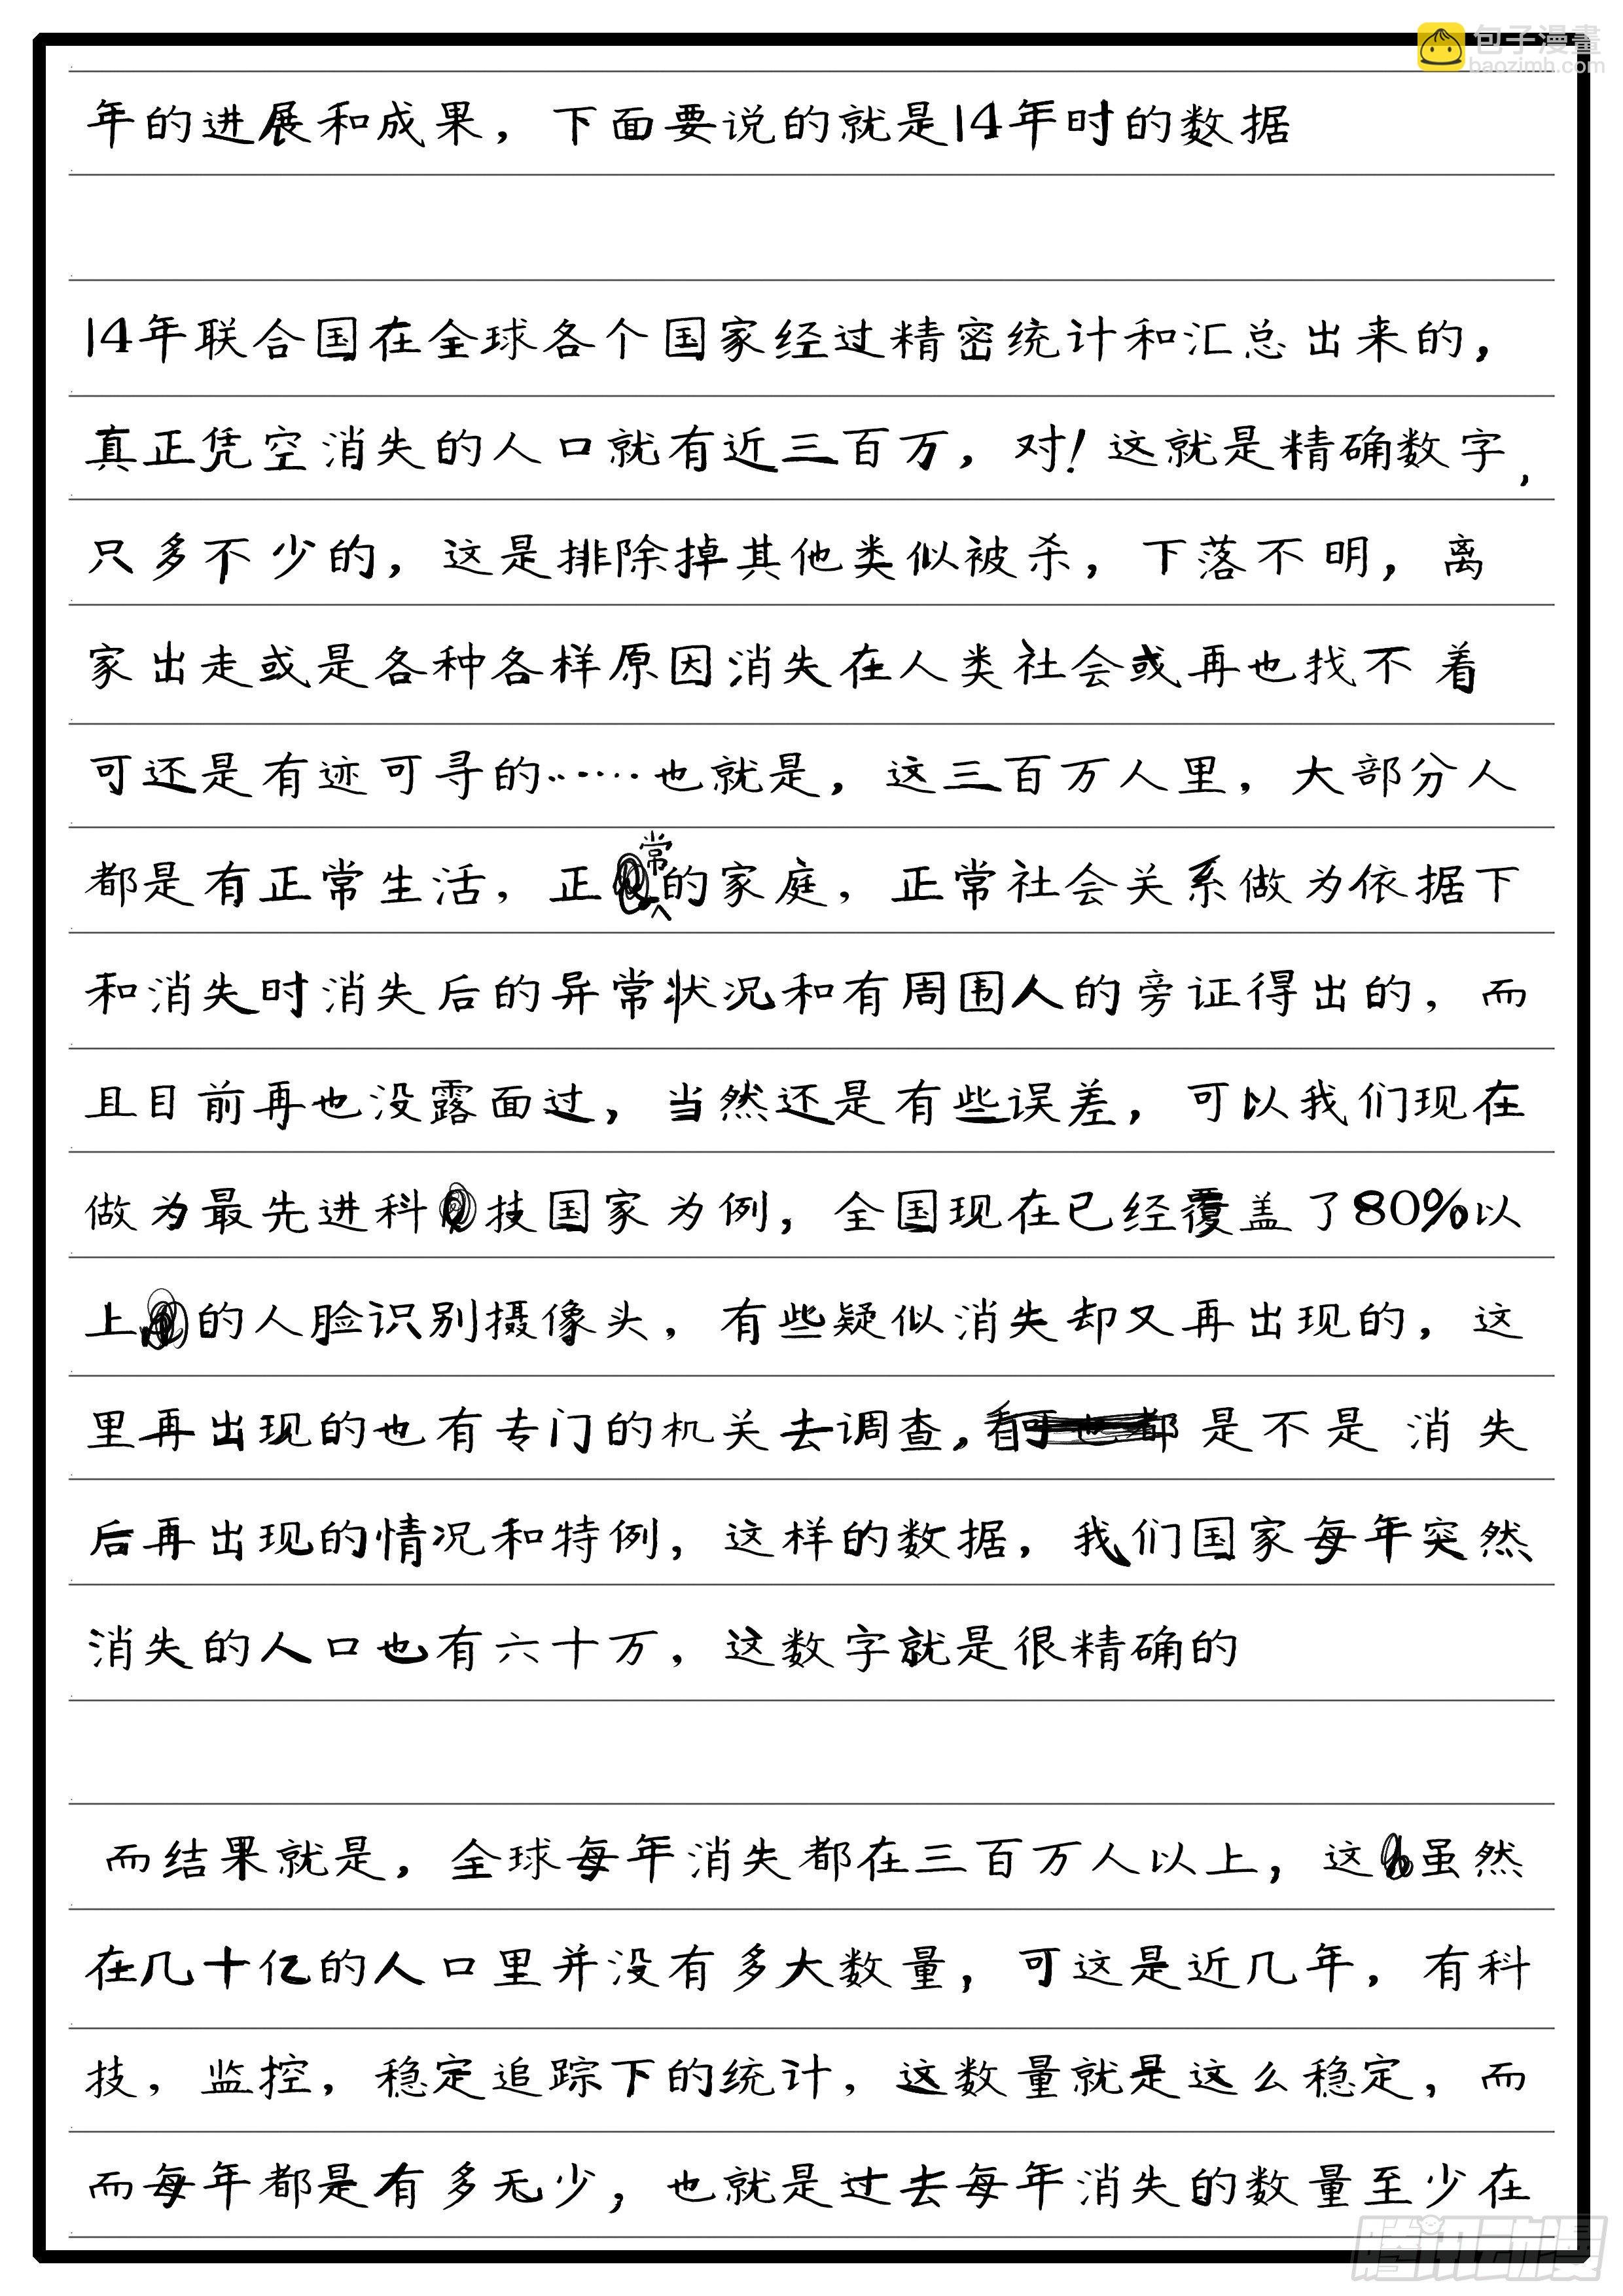 包子漫畫
baozimh.com
年的进展和成果，下面要说的就是14年时的数据
14年联合国在全球各个国家经过精密统计和汇总出来的，
真正凭空消失的人口就有近三百万，对！这就是精确数字，
只多不少的，这是排除掉其他类似被杀，下落不明，离
家出走或是各种各样原因消失在人类社会或再也找不着
可还是有迹可寻的……也就是，这三百万人里，大部分人
都是有正常生活，正常的家庭，正常社会关系做为依据下
和消失时消失后的异常状况和有周围人的旁证得出的，而
且目前再也没露面过，当然还是有些误差，可以我们现在
做为最先进科技国家为例，全国现在已经覆盖了80%以
上的人脸识别摄像头，有些疑似消失却又再出现的，这
里再出现的也有专门的机关去调查，看是不是消失
后再出现的情况和特例，这样的数据，我们国家每年突然
消失的人口也有六十万，这数字就是很精确的
而结果就是，全球每年消失都在三百万人以上，这虽然
在几十亿的人口里并没有多大数量，可这是近几年，有科
技，监控，稳定追踪下的统计，这数量就是这么稳定，而
而每年都是有多无少，也就是过去每年消失的数量至少在
腾讯动漫